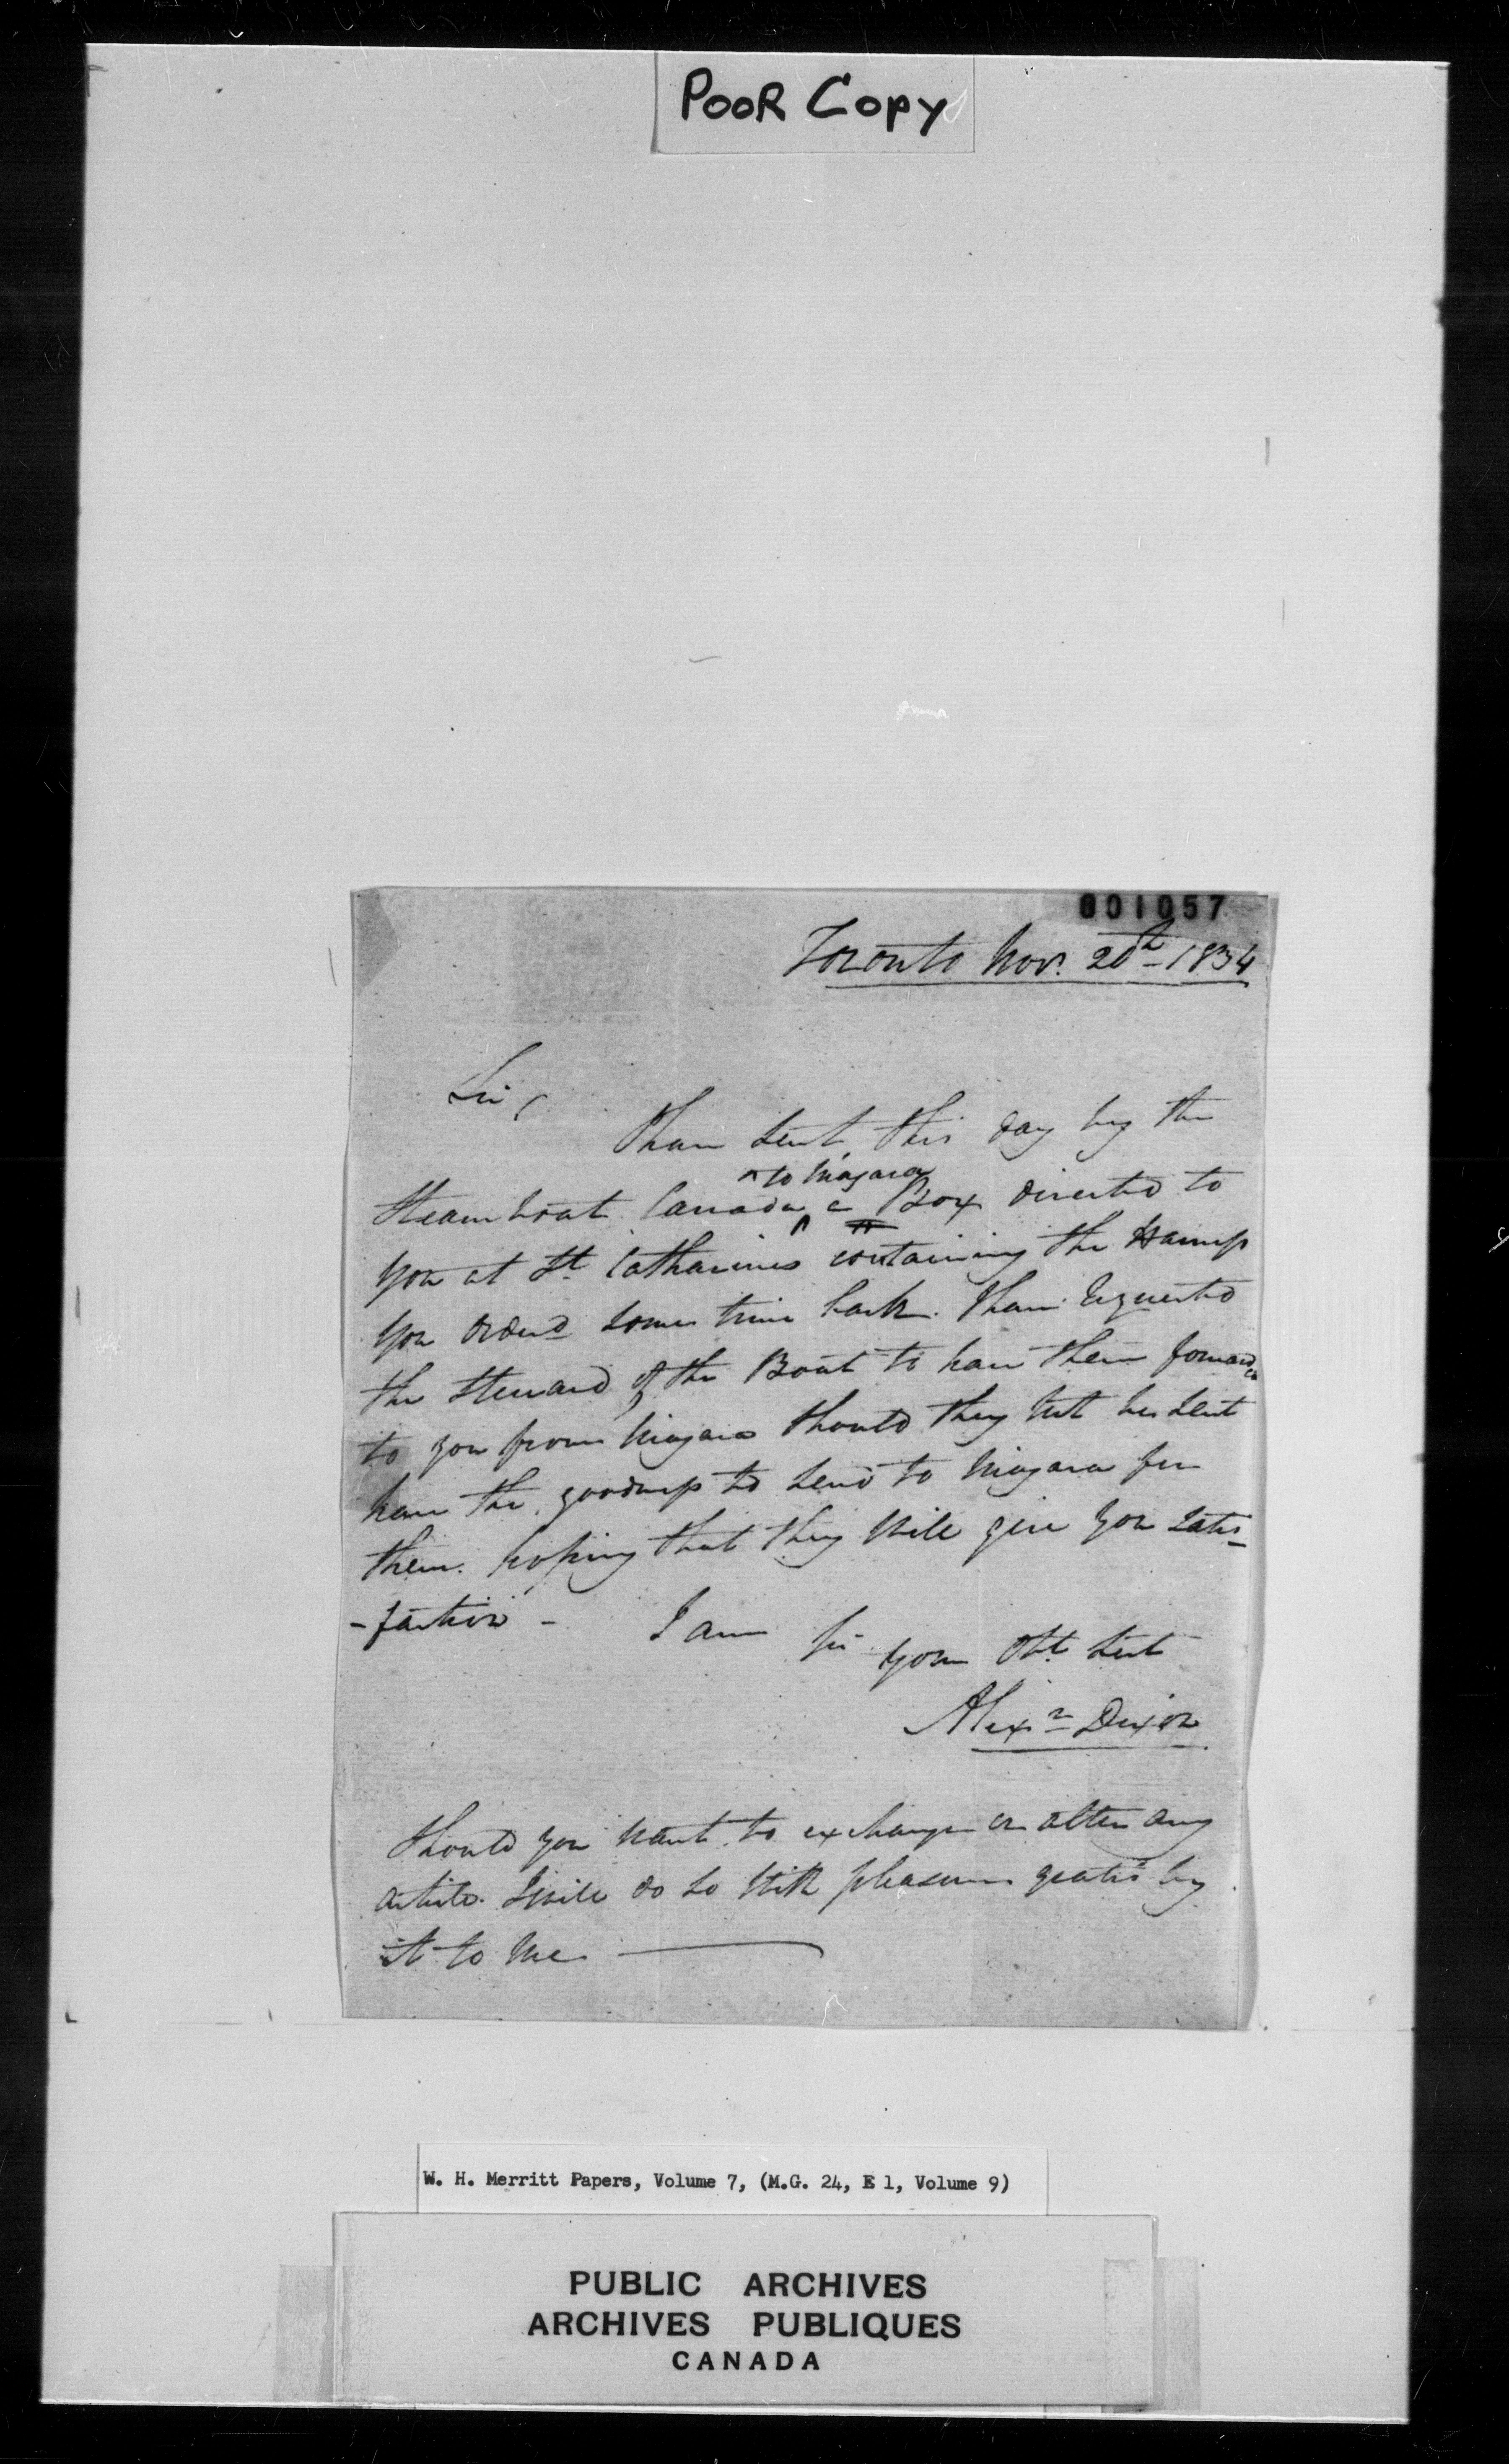 POOR COPY
001057
Toronto Nov. 20th 1834
Sir,
I have sent this day by the
^ to Niagara
Steam boat Canada ^ a Box directed to
you at St Catharines containing the Harness
you orderd some time back. I have requested
the Steward of the Boat to have them forwarded
to you from Niagara Should they not be sent
have the goodness to send to Niagara for
them. hoping that they will give you satis-
-faction - I am Sir your Obt Servt
Alexr Dixon
Should you want to exchange or alter any
article I will do so with pleasure gratis by
it to me
W. H. Merritt Papers, Volume 7, (M.G. 24, E 1, Volume 9)
PUBLIC ARCHIVES
ARCHIVES PUBLIQUES
CANADA